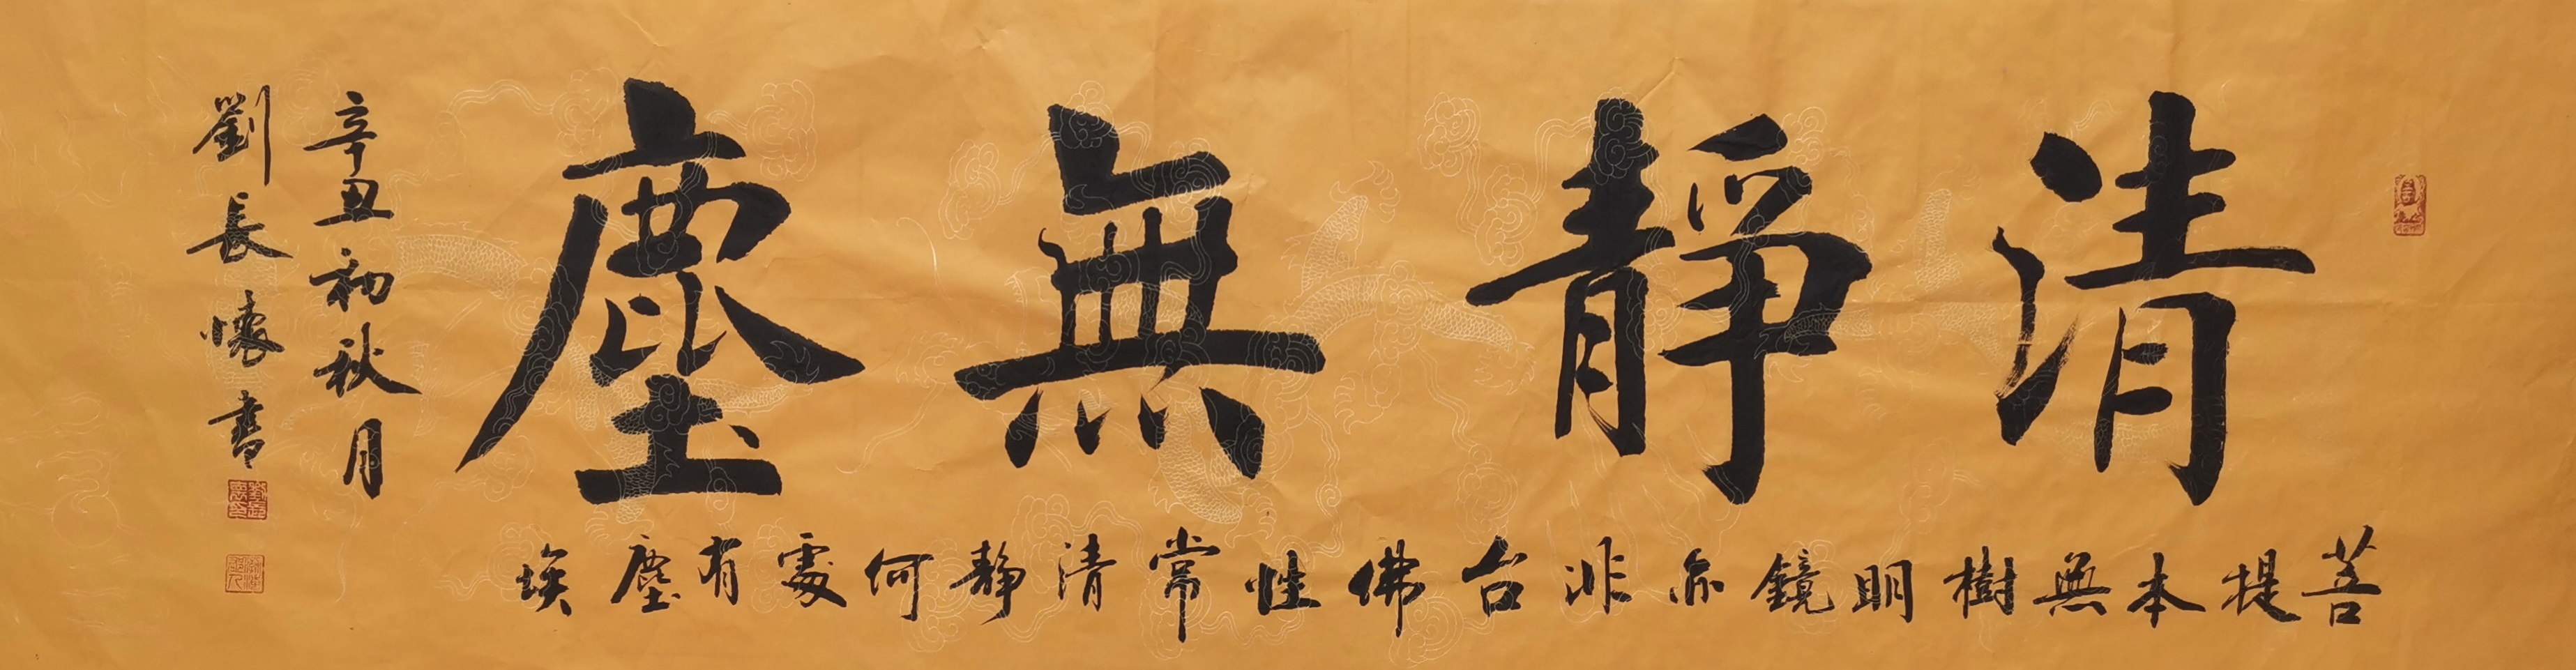 清靜無塵
菩提本無樹明鏡亦非台佛性常清靜何處有塵埃
辛丑初秋月
劉長懷書